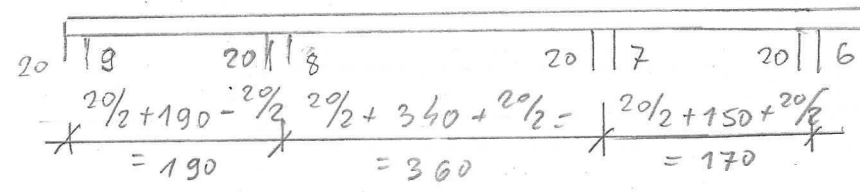 20 9 20 8 20 7 20 6
20/2 + 190 - 20/2 20/2 + 340 + 20/2 = 20/2 + 150 + 20/2
= 190 = 360 = 170